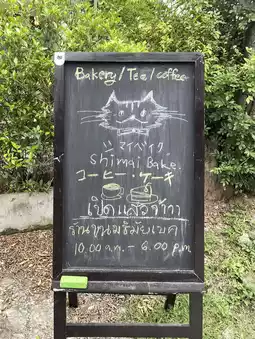 Bakery/Tea/coffee
シマイベイク
Shimai Bake.
コーヒー・ケーキ
เปิดแล้วจ้าาา
ร้านขนมชิมัยเบค
10.00 a.m. - 6.00 p.m